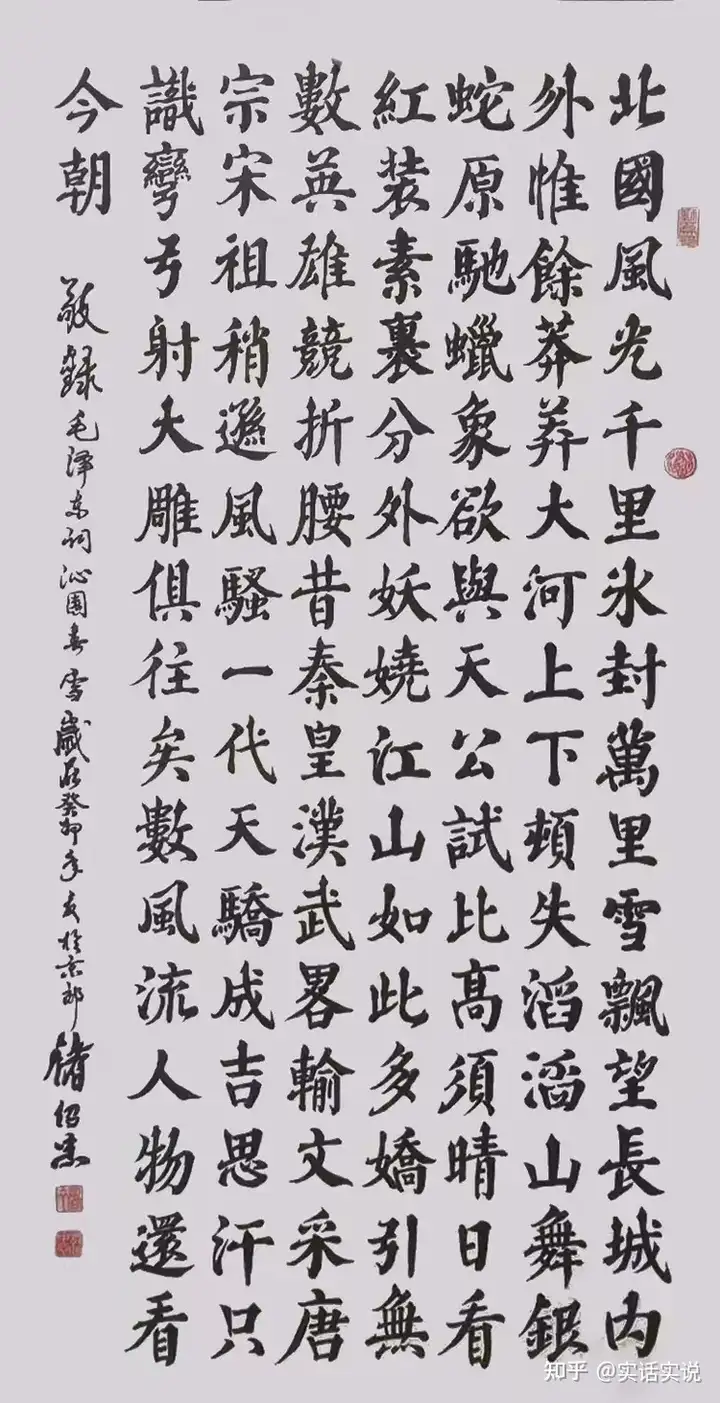 北國風光千里氷封萬里雪飄望長城内
外惟餘莽莽大河上下頓失滔滔山舞銀
蛇原馳蠟象欲與天公試比高須晴日看
紅装素裹分外妖嬈江山如此多嬌引無
數英雄競折腰昔秦皇漢武畧輸文采唐
宗宋祖稍遜風騷一代天驕成吉思汗只
識彎弓射大雕俱往矣數風流人物還看
今朝
敬錄毛泽东词沁園春雪歲在癸卯年夏於京郊
知乎 @实话实说